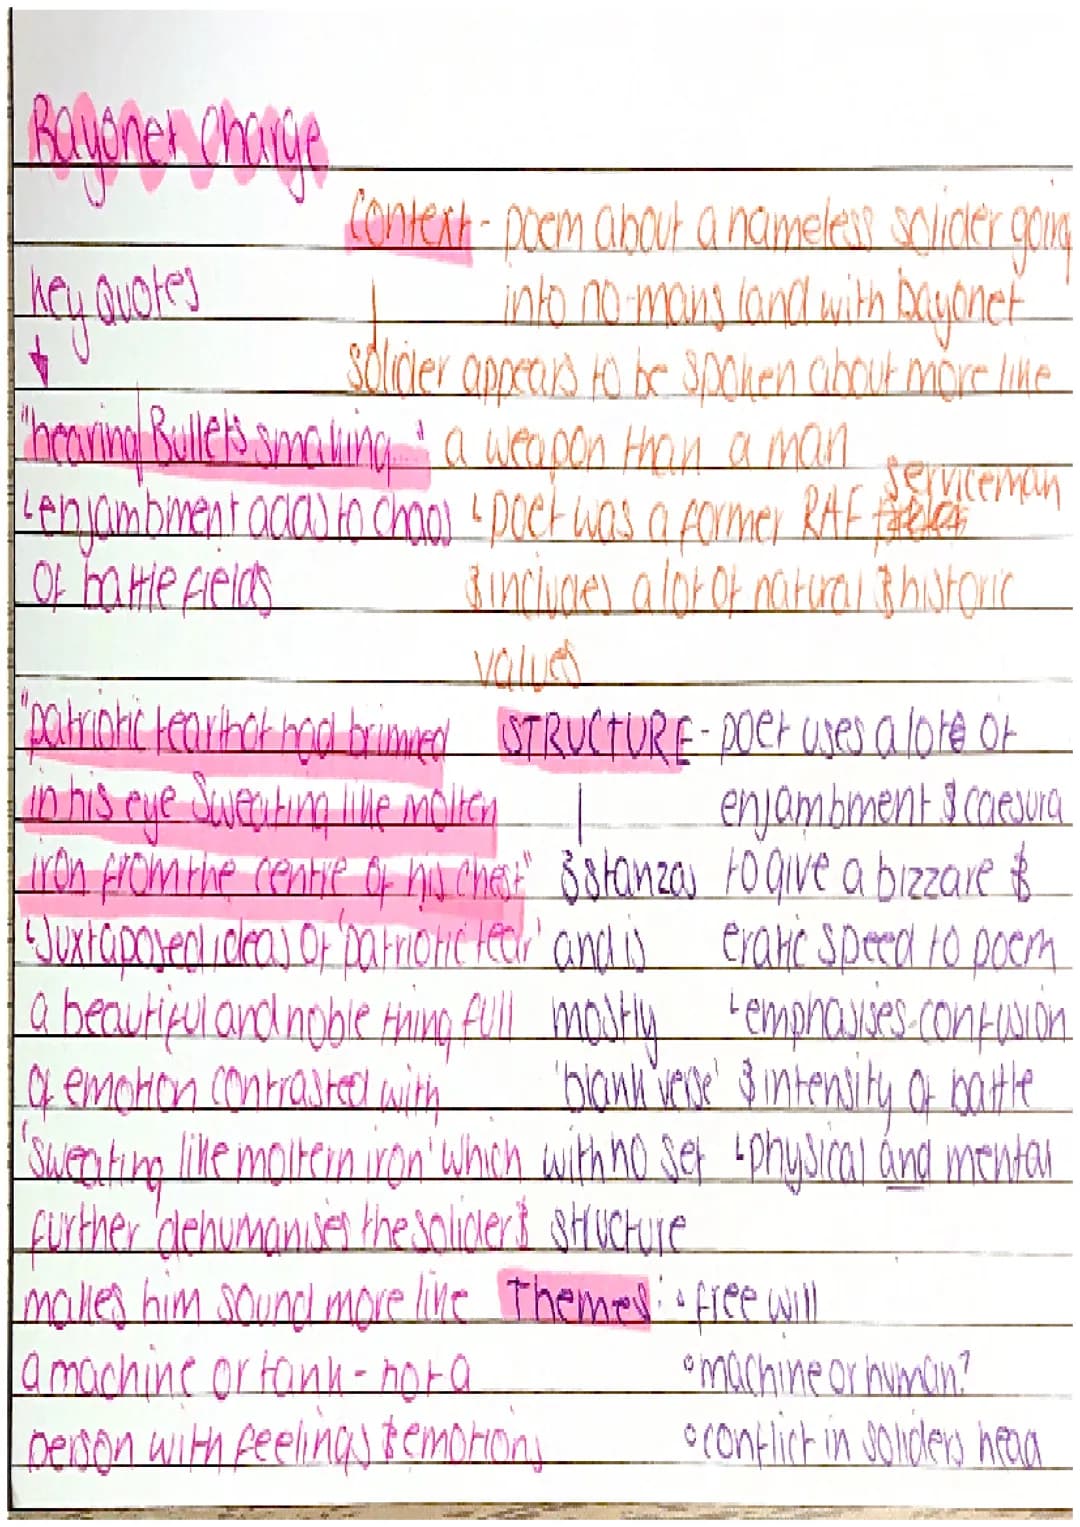 Bayonet Charge
Context - poem about a nameless solider going
into no-mans land with bayonet
solider appears to be spoken about more like
a weapon than a man
↳poet was a former RAF serviceman
& includes a lot of natural & historic
values
key quotes
"hearing Bullets smaking..."
↳enjambment adds to chaos
of battle fields
"patriotic tear that had brimmed
in his eye Sweating like molten
iron from the centre of his chest"
↳Juxtaposed ideas of 'patriotic tear'
a beautiful and noble thing full
of emotion contrasted with
'sweating like moltern iron' which
further dehumanises the solider &
makes him sound more like
a machine or tank - not a
person with feelings & emotions
STRUCTURE - poet uses a lote of
enjambment & caesura
to give a bizzare &
eratic speed to poem
↳emphasises confusion
& intensity of battle
↳physical and mental
3 stanzas
and is
mostly
'blank verse'
with no set
structure
Themes: • free will
• machine or human?
• conflict in soliders head